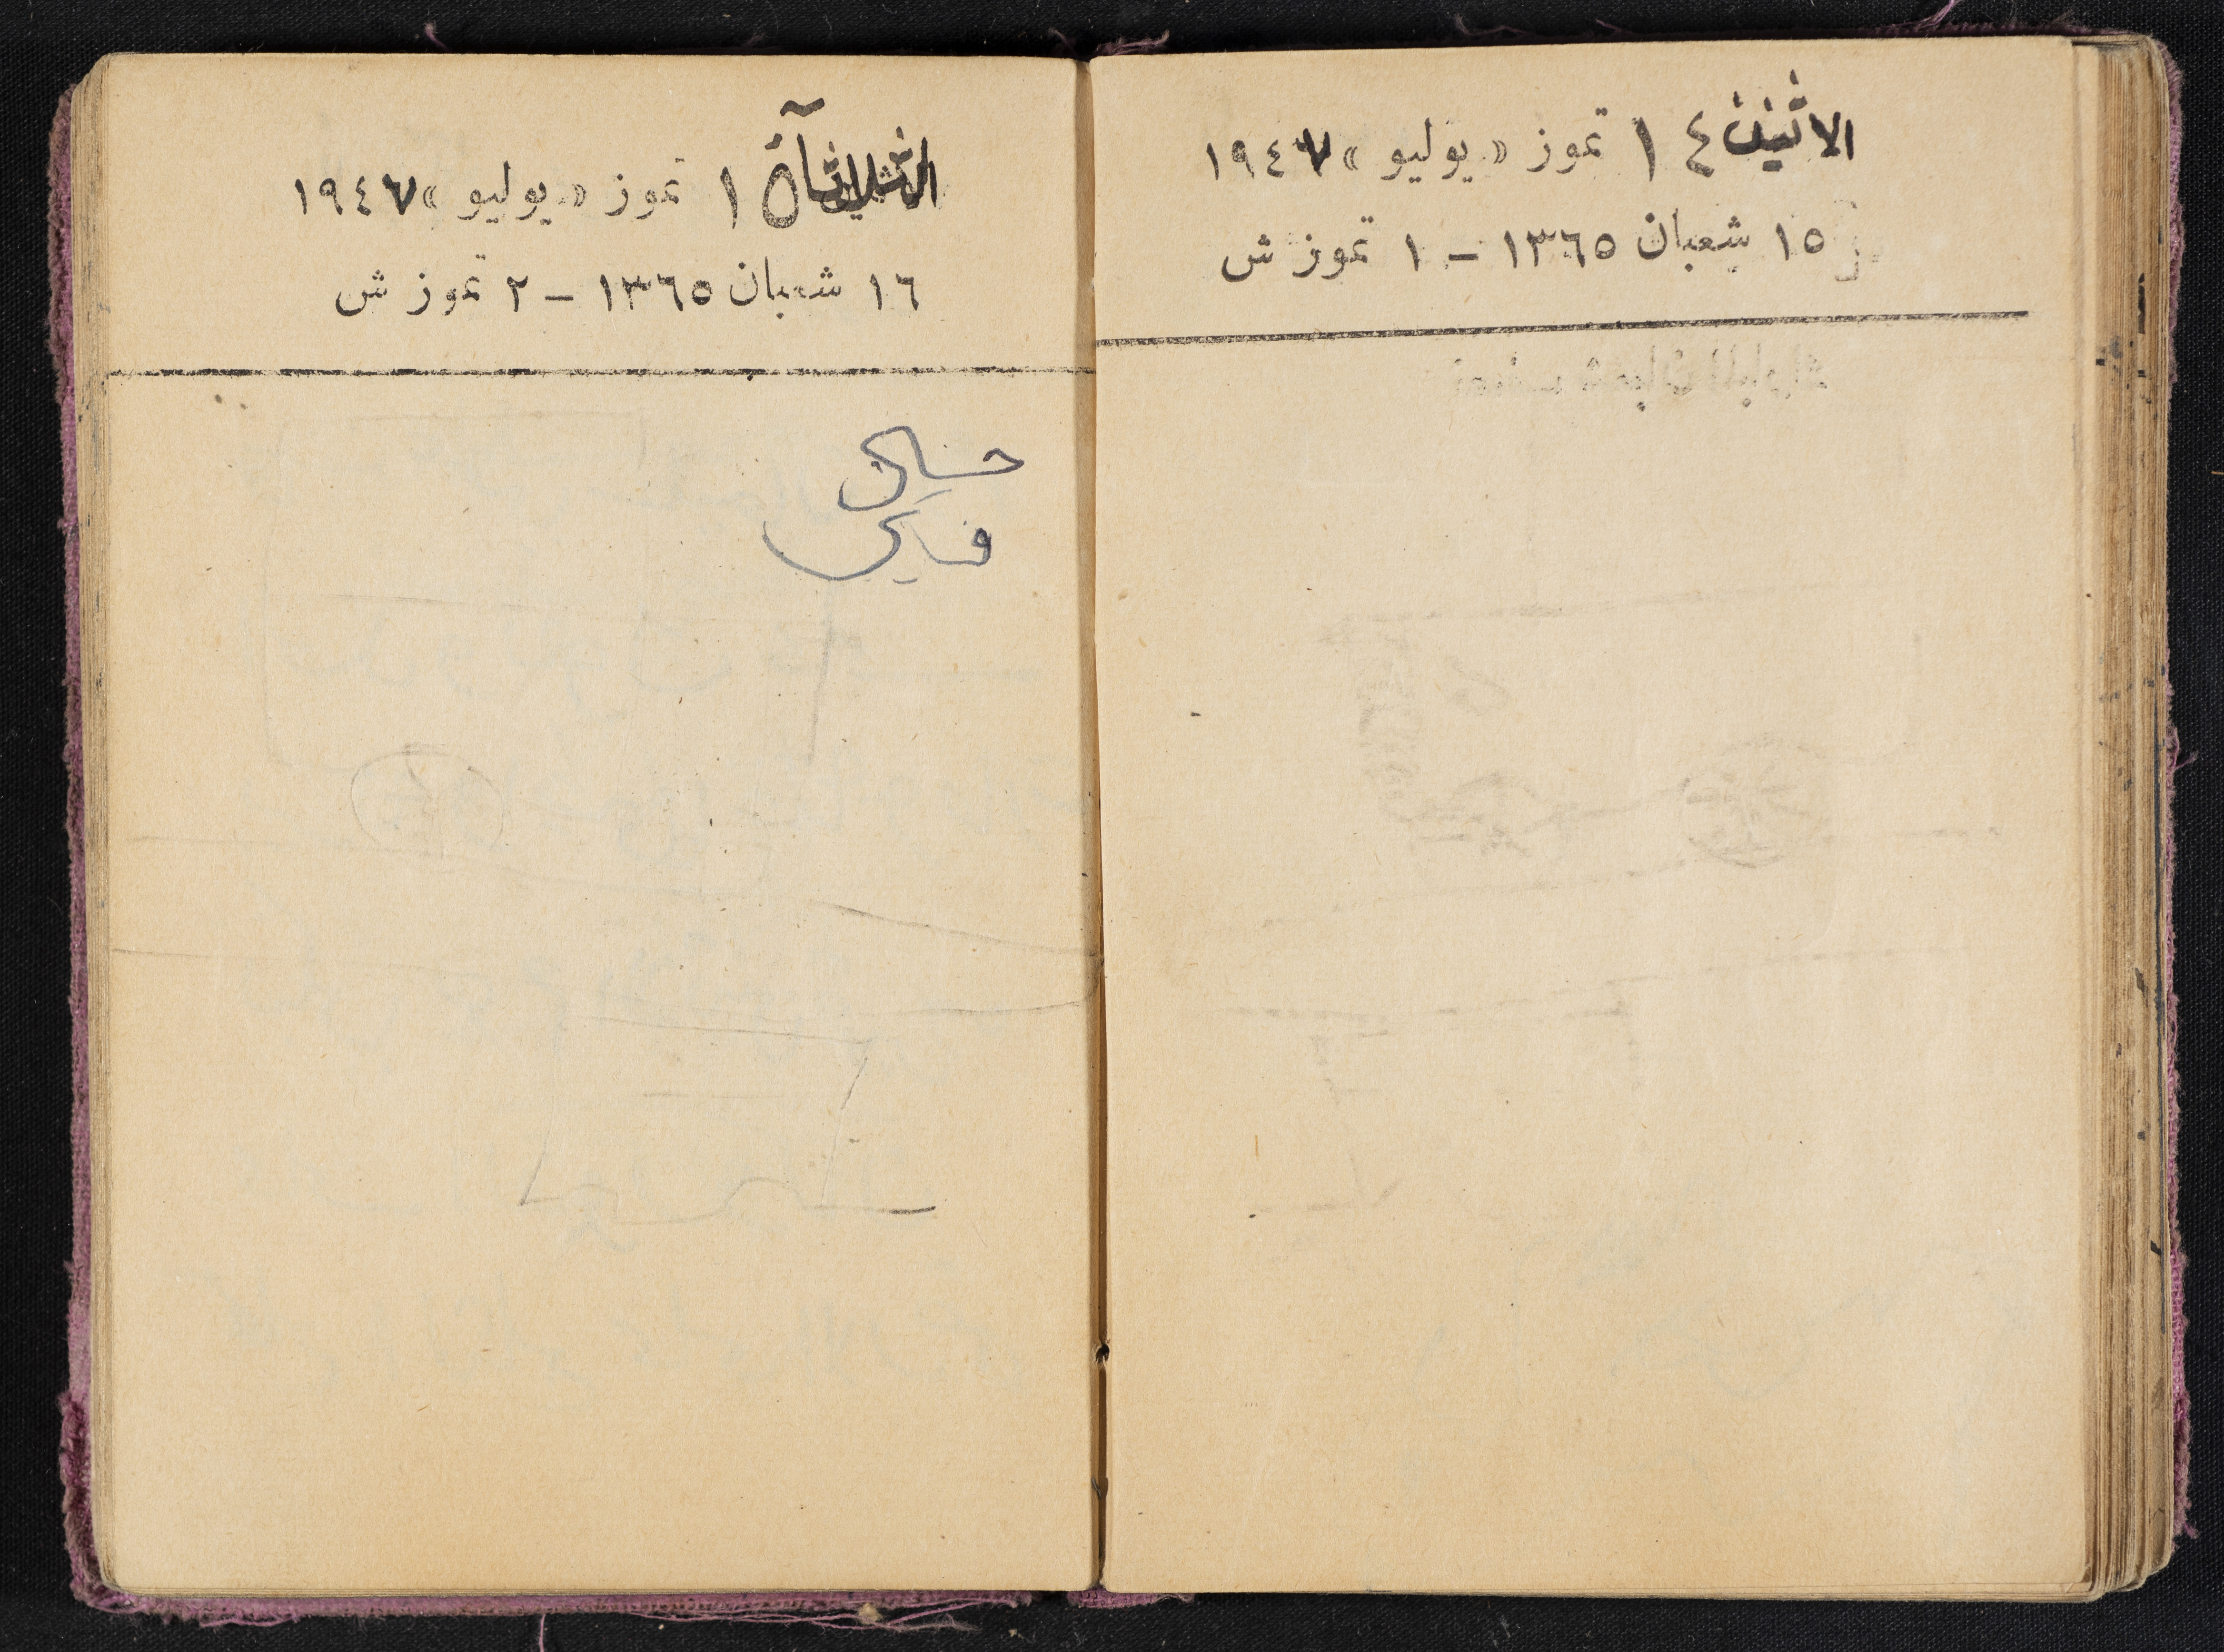 الاثنين ١٤ تموز «يوليو» ١٩٤٧
١٥ شعبان ١٣٦٥ – ١ تموز ش
الثلاثاء ١٥ تموز «يوليو» ١٩٤٧
١٦ شعبان ١٣٦٥ – ٢ تموز ش